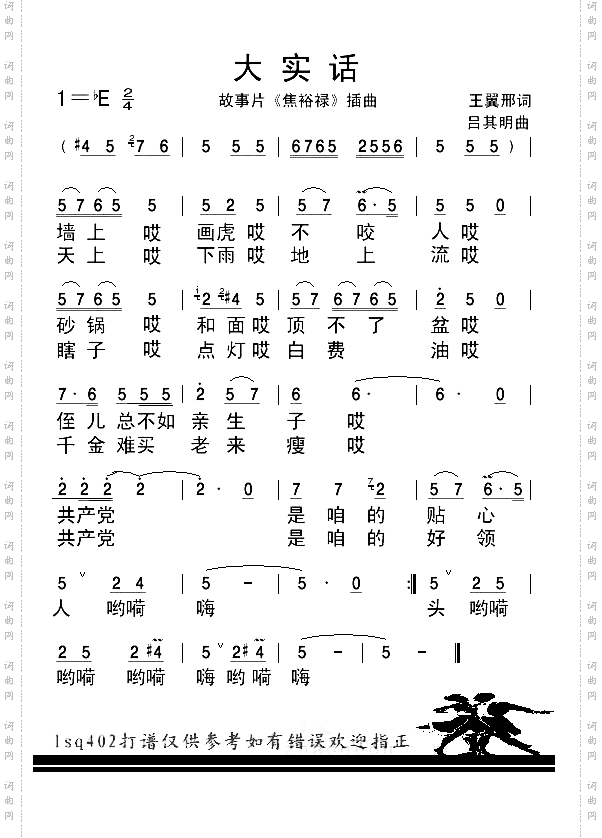 大 实 话
1=♭E 2/4 故事片《焦裕禄》插曲 王翼邢词
吕其明曲
( #4 5 27 6 | 5 5 5 | 6765 2556 | 5 5 5 ) |
5 7 6 5 5 | 5 2 5 | 5 7 6· 5 | 5 5 0 |
墙 上 哎 画虎 哎 不 咬 人 哎
天 上 哎 下雨 哎 地 上 流 哎
5 7 6 5 5 | 12 2#4 5 | 5 7 6 7 6 5 | 2 5 0 |
砂 锅 哎 和 面 哎 顶 不 了 盆 哎
瞎 子 哎 点 灯 哎 白 费 油 哎
7· 6 5 5 5 | 2 5 7 | 6 6· | 6· 0 |
侄 儿 总不如 亲 生 子 哎
千 金 难买 老 来 瘦 哎
2 2 2 2 | 2· 0 | 7 7 72 | 5 7 6· 5 |
共产党 是 咱 的 贴 心
共产党 是 咱 的 好 领
5 ˅ 2 4 | 5 - | 5· 0 :| 5 ˅ 2 5 |
人 哟嗬 嗨 头 哟嗬
2 5 2 #4 | 5 ˅ 2#4 | 5 - | 5 - ‖
哟嗬 哟嗬 嗨 哟 嗬 嗨
1sq402打谱仅供参考如有错误欢迎指正
词曲网 词曲网 词曲网 词曲网 词曲网 词曲网 词曲网